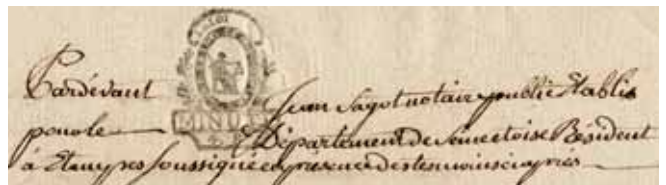 Pardevant Jean Sagot notaire public Etablis
pour le Département de Seine et oise Résident
à Etampes Soussigné en présence des temoins ci après